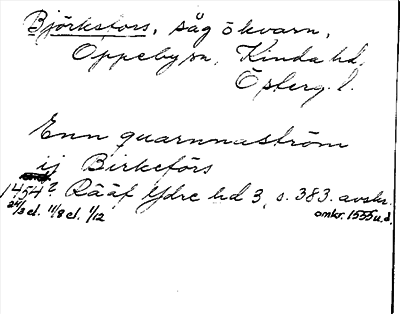 Björksfors, såg ö kvarn,
Oppeby sn, Kinda hd,
Österg. l.
Enn quarnnaström
ij Birkeförs
1454? Rääf Ydre hd 3, s. 383. avskr.
24/3 el. 11/8 el. 1/12 omkr. 1555 u.d.